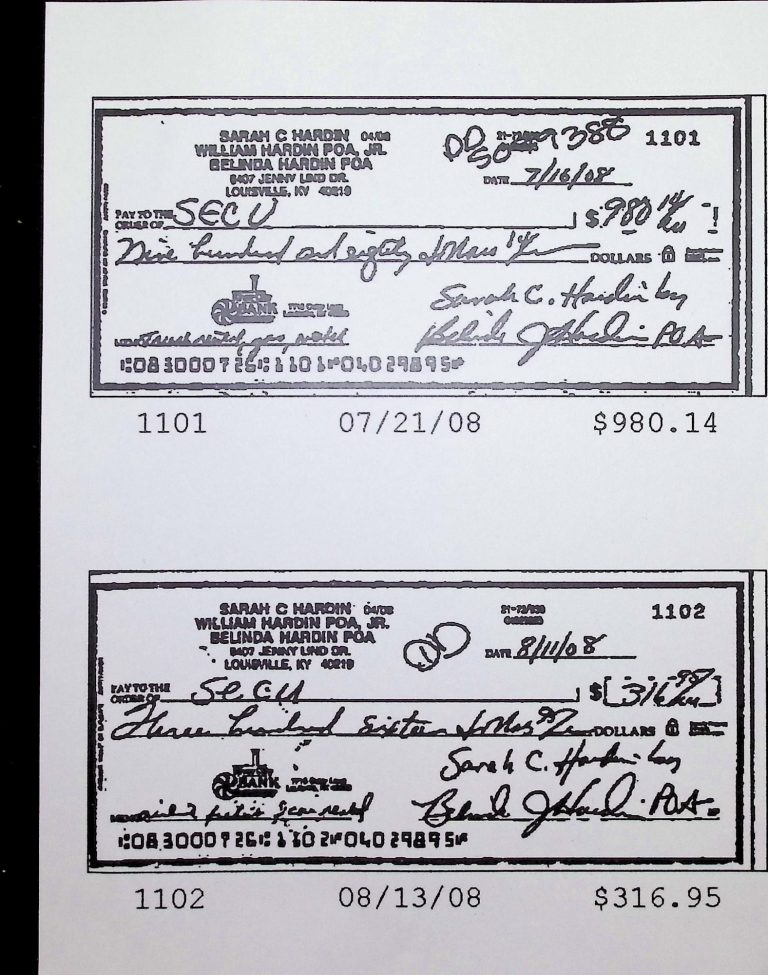 SARAH C HARDIN 04/08
WILLIAM HARDIN POA, JR.
BELINDA HARDIN POA
9407 JENNY LIND DR.
LOUISVILLE, KY 40219
1101
DATE 7/16/08
PAY TO THE
ORDER OF SECU $980 14/
Nine hundred and eighty dollars 14/ DOLLARS
BANK
Sarah C. Hardin by
Belinda J Hardin POA
1101 07/21/08 $980.14
SARAH C HARDIN 04/08
WILLIAM HARDIN POA, JR.
BELINDA HARDIN POA
9407 JENNY LIND DR.
LOUISVILLE, KY 40219
1102
DATE 8/11/08
PAY TO THE
ORDER OF SECU $316 95/
Three hundred sixteen dollars 95/ DOLLARS
BANK
Sarah C. Hardin by
Belinda J Hardin POA
1102 08/13/08 $316.95